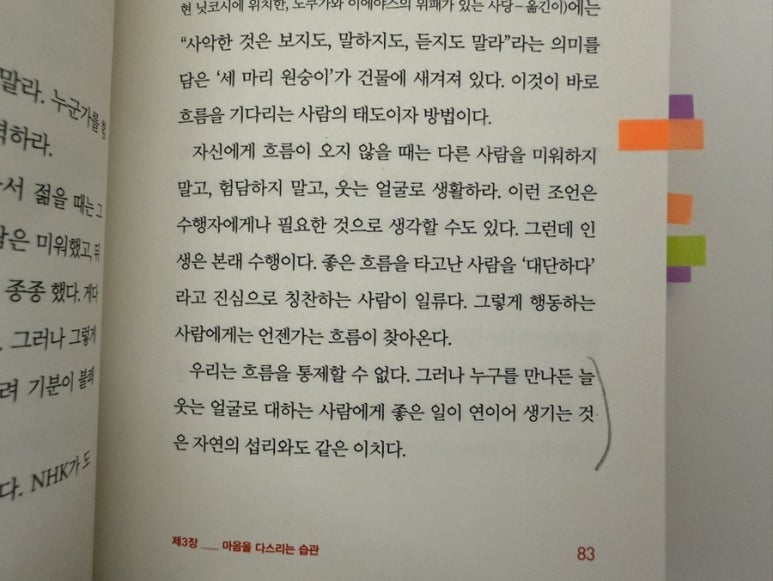 말라. 누군가를
격하라.
서 젊을 때는 그
은 미워했고, 뒤
종종 했다. 게다
그러나 그렇게
려 기분이 불쾌
다. NHK가 도
현 닛코시에 위치한, 도쿠가와 이에야스의 위패가 있는 사당–옮긴이)에는
“사악한 것은 보지도, 말하지도, 듣지도 말라”라는 의미를
담은 ‘세 마리 원숭이’가 건물에 새겨져 있다. 이것이 바로
흐름을 기다리는 사람의 태도이자 방법이다.
자신에게 흐름이 오지 않을 때는 다른 사람을 미워하지
말고, 험담하지 말고, 웃는 얼굴로 생활하라. 이런 조언은
수행자에게나 필요한 것으로 생각할 수도 있다. 그런데 인
생은 본래 수행이다. 좋은 흐름을 타고난 사람을 ‘대단하다’
라고 진심으로 칭찬하는 사람이 일류다. 그렇게 행동하는
사람에게는 언젠가는 흐름이 찾아온다.
우리는 흐름을 통제할 수 없다. 그러나 누구를 만나든 늘
웃는 얼굴로 대하는 사람에게 좋은 일이 연이어 생기는 것
은 자연의 섭리와도 같은 이치다.
제3장 __ 마음을 다스리는 습관
83